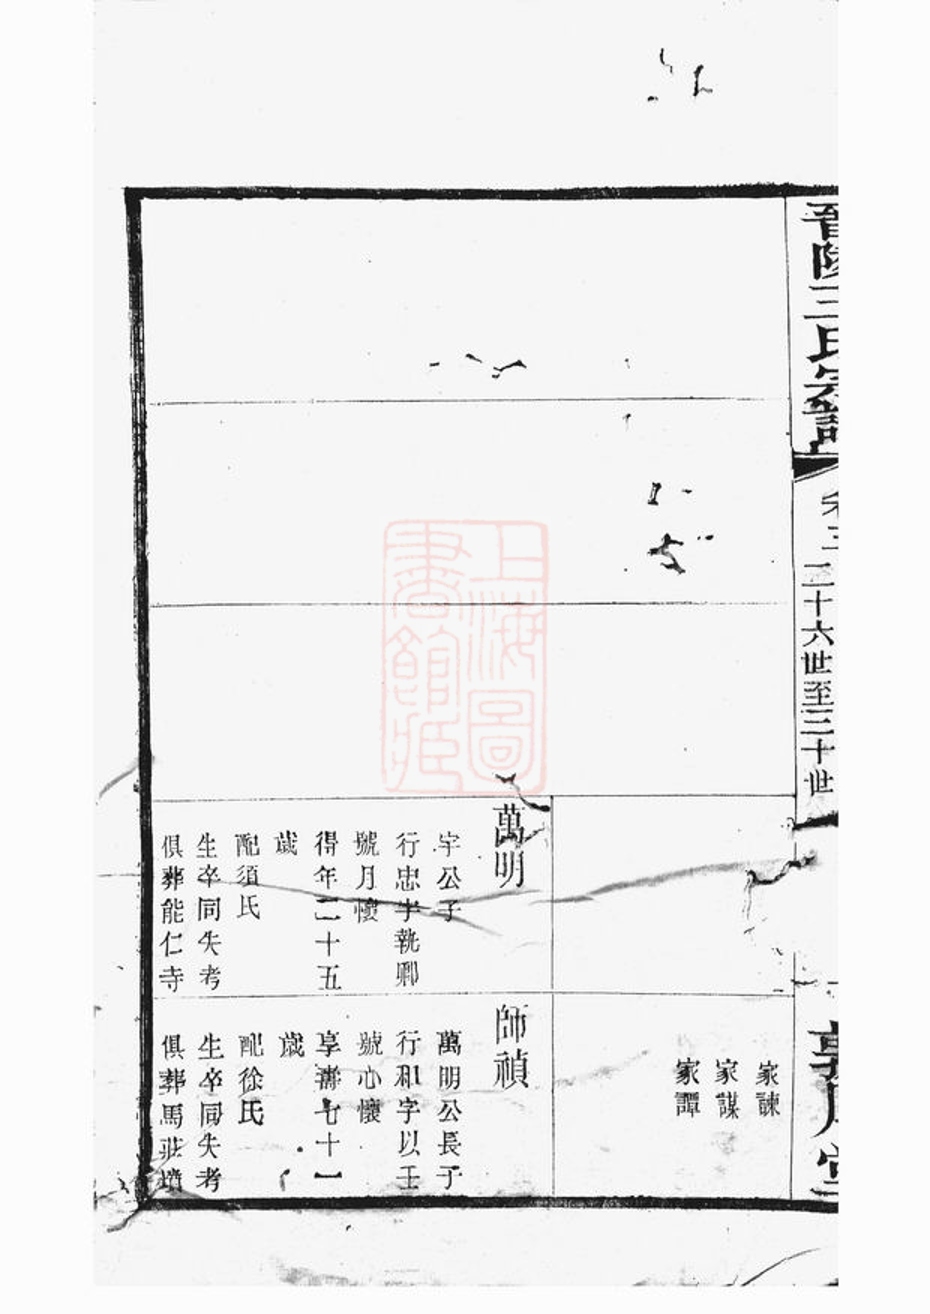 晉陵王氏宗譜
卷三
二十六世至三十世
家諫
家謀
家譚
萬明
字公子
行忠字執卿
號月懷
得年二十五
歲
配須氏
生卒同失考
俱葬能仁寺
師禎
萬明公長子
行和字以壬
號心懷
享壽七十一
歲
配徐氏
生卒同失考
俱葬馬莊墳
上海圖
書館藏